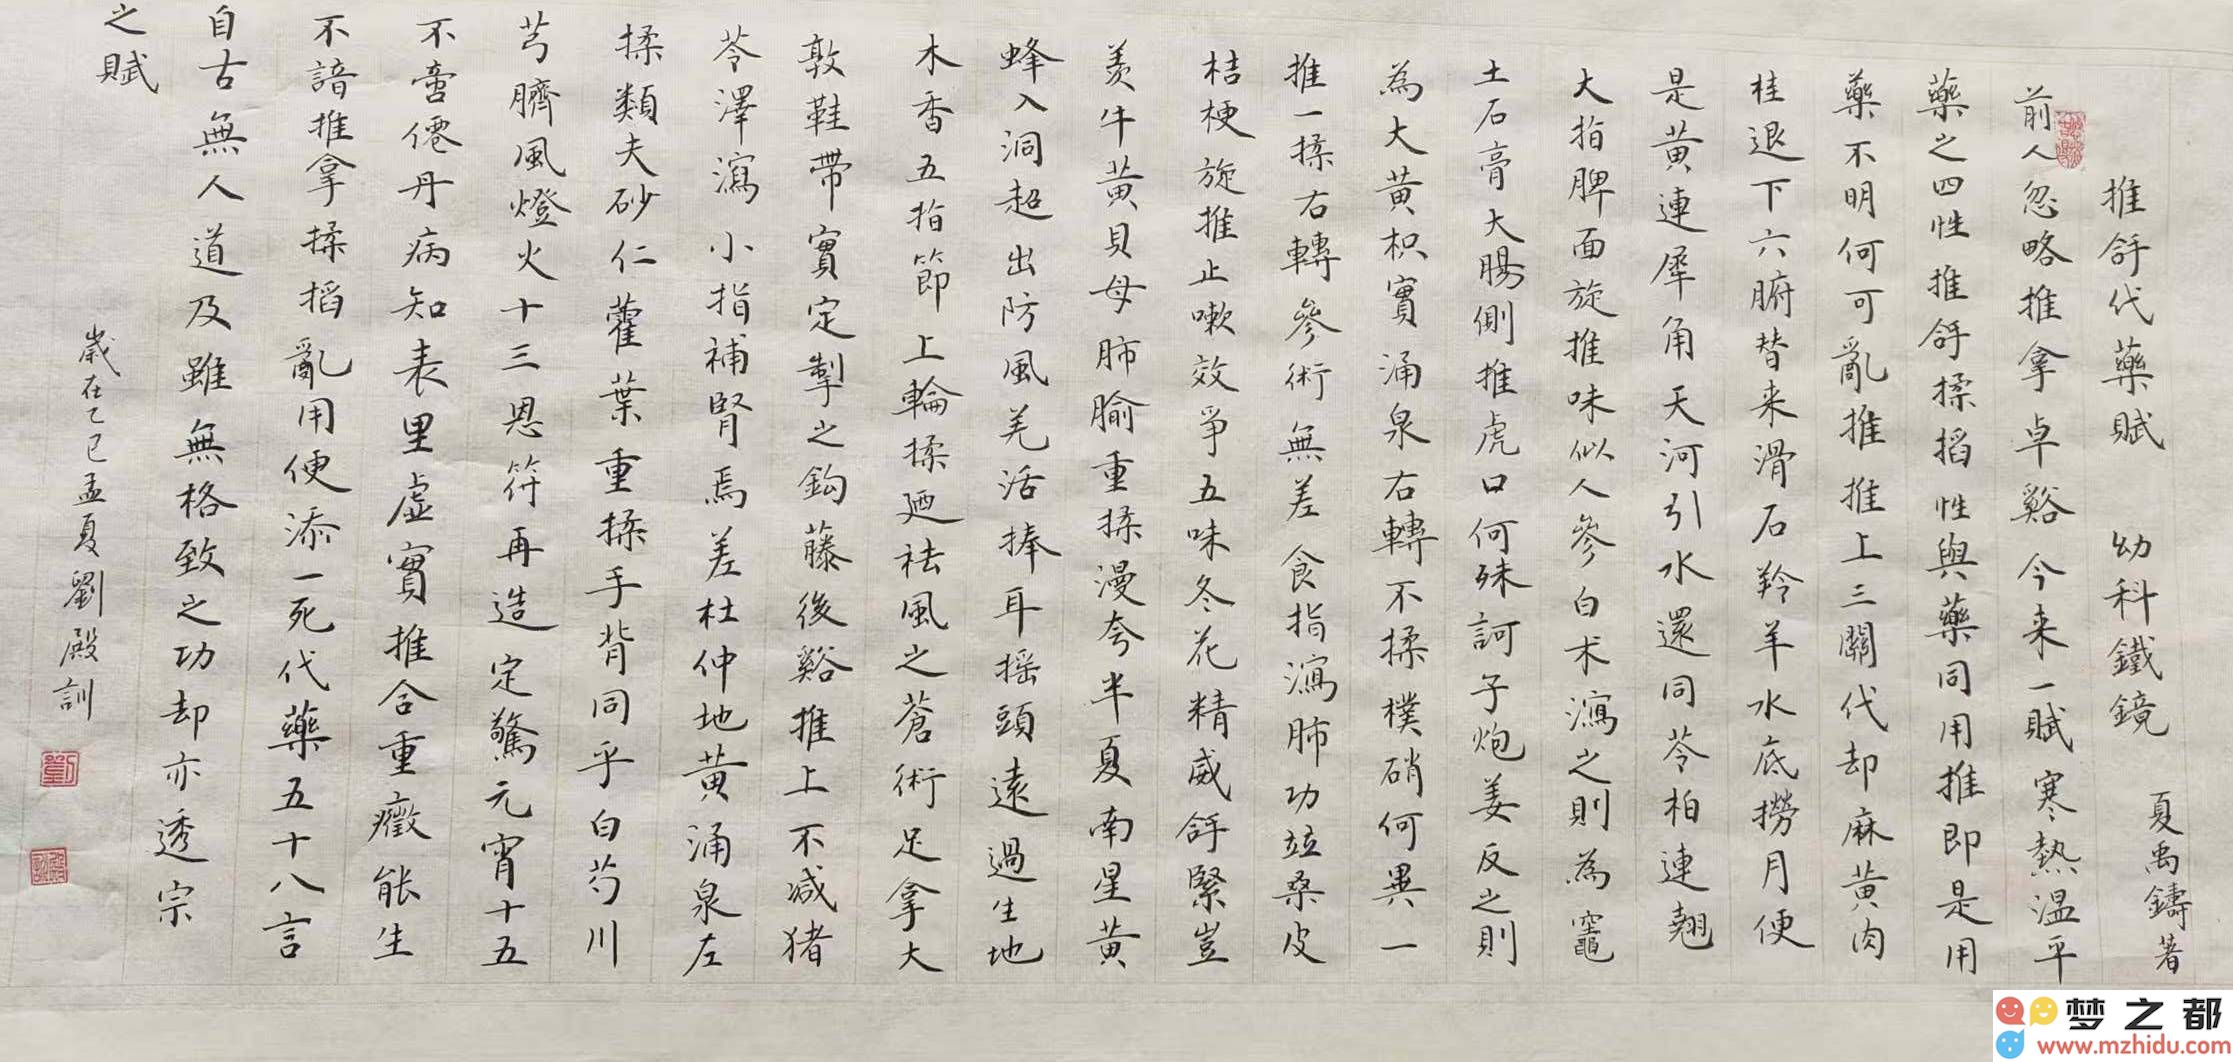 推拏代藥賦 幼科鐵鏡 夏禹鑄著
前人忽略推拿卓谿今来一賦寒熱温平
藥之四性推拏揉掐性與藥同用推即是用
藥不明何可亂推推上三關代却麻黄肉
桂退下六腑替来滑石羚羊水底撈月便
是黄連犀角天河引水還同芩柏連翹
大指脾面旋推味似人參白术瀉之則為竈
土石膏大腸側推虎口何殊訶子炮姜反之則
為大黄枳實涌泉右轉不揉樸硝何異一
推一揉右轉參術無差食指瀉肺功竝桑皮
桔梗旋推止嗽效爭五味冬花精威拏緊豈
羡牛黄貝母肺腧重揉漫夸半夏南星黄
蜂入洞超出防風羌活捧耳摇頭遠過生地
木香五指節上輪揉廼祛風之蒼術足拿大
敦鞋帶實定掣之鈎藤後谿推上不减猪
苓澤瀉小指補腎焉差杜仲地黄涌泉左
揉類夫砂仁藿葉重揉手背同乎白芍川
芎臍風燈火十三恩符再造定驚元宵十五
不啻僊丹病知表里虚實推合重癥能生
不諳推拿揉掐亂用便添一死代藥五十八言
自古無人道及雖無格致之功却亦透宗
之賦
歲在乙巳孟夏劉殿訓
梦之都
www.mzhidu.com